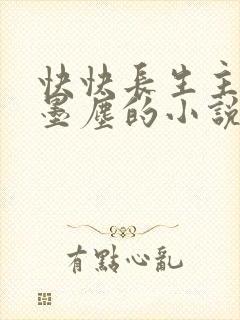 快快長生主
墨塵的小說
有點心亂